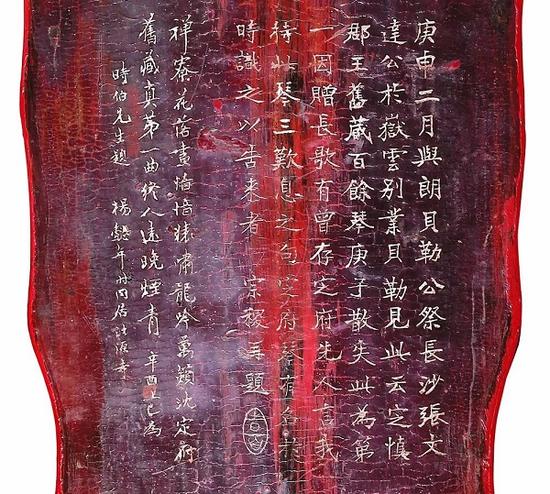 庚申二月與朗貝勒公祭長沙張文
達公於嶽雲別業貝勒見此云定慎
郡王舊藏百餘琴庚子散失此為第
一因贈長歌有曾存定府先人言我
持此琴三歎息之句定府琴有名於
時識之以告來者 宗稷再題
禪寮花落晝愔愔猿嘯龍吟萬籟沈定府
舊藏真第一曲終人遠曉煙青 辛酉上巳為
時伯先生題 楊懿年時同居法源寺